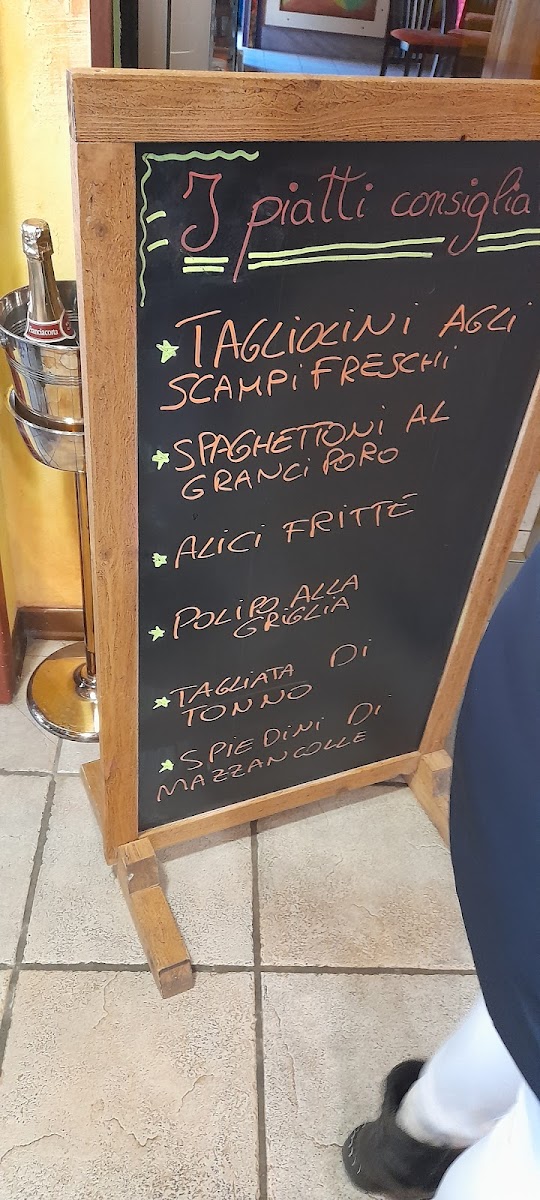 Franciacorta
I piatti consiglia
TAGLIOLINI AGLI
SCAMPI FRESCHI
SPAGHETTONI AL
GRANCIPORO
ALICI FRITTE
POLIPO ALLA
GRIGLIA
TAGLIATA DI
TONNO
SPIEDINI DI
MAZZANCOLLE